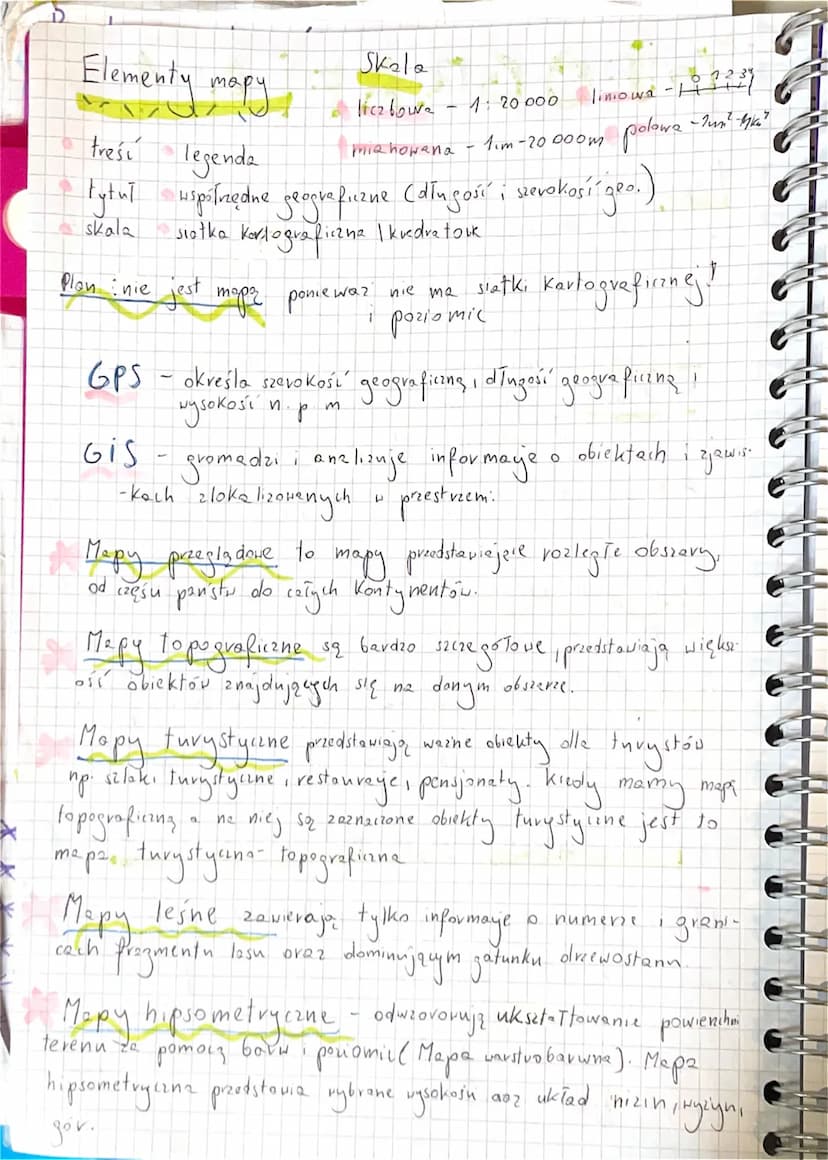 Elementy mapy
Skala
liczbowa - 1:20000
liniowa - 0 1 2 3 4
mianowana - 1cm-20 000m
polowa - 1cm²-4km²
treść
legenda
tytuł
współrzędne geograficzne (długość i szerokość geo.)
skala
siatka kartograficzna / kwadratowa
Plan :nie jest mapą ponieważ nie ma siatki kartograficznej!
i poziomic
GPS - określa szerokość geograficzną, długość geograficzną i
wysokość n. p m
GiS - gromadzi i analizuje informacje o obiektach i zjawis-
-kach zlokalizowanych w przestrzeni.
Mapy przeglądowe to mapy przedstawiające rozległe obszary,
od części państw do całych kontynentów.
Mapy topograficzne są bardzo szczegółowe, przedstawiają większ-
ość obiektów znajdujących się na danym obszarze.
Mapy turystyczne przedstawiają ważne obiekty dla turystów
np. szlaki turystyczne, restauracje, pensjonaty. Kiedy mamy mapę
topograficzną a na niej są zaznaczone obiekty turystyczne jest to
mapa turystyczno-topograficzna
Mapy leśne zawierają tylko informacje o numerze i grani-
cach fragmentu lasu oraz dominującym gatunku drzewostanu.
Mapy hipsometryczne - odwzorowują ukształtowanie powierzchni
terenu za pomocą barw i poziomic (Mapa warstwobarwna). Mapa
hipsometryczna przedstawia wybrane wysokości oraz układ nizin, wyżyn,
gór.